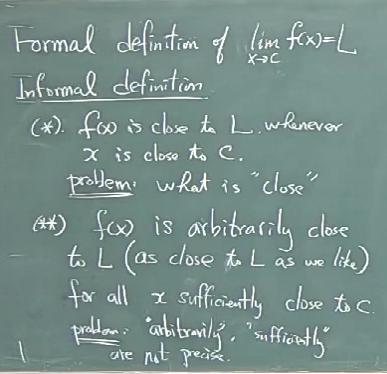 Formal definition of lim f(x)=L
x→c
Informal definition
(*). f(x) is close to L whenever
x is close to C.
problem: what is "close"
(**) f(x) is arbitrarily close
to L (as close to L as we like)
for all x sufficiently close to C.
problem: "arbitrarily", "sufficiently"
are not precise.